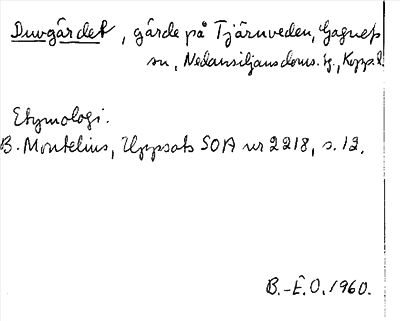 Duvgärdet, gärde på Tjärnveden, Gagnefs
sn, Nedansiljans doms. tg., Kopp. l.
Etymologi.
B. Montelius, Uppsats SOA nr 2218, s. 12.
B.-E.O. 1960.